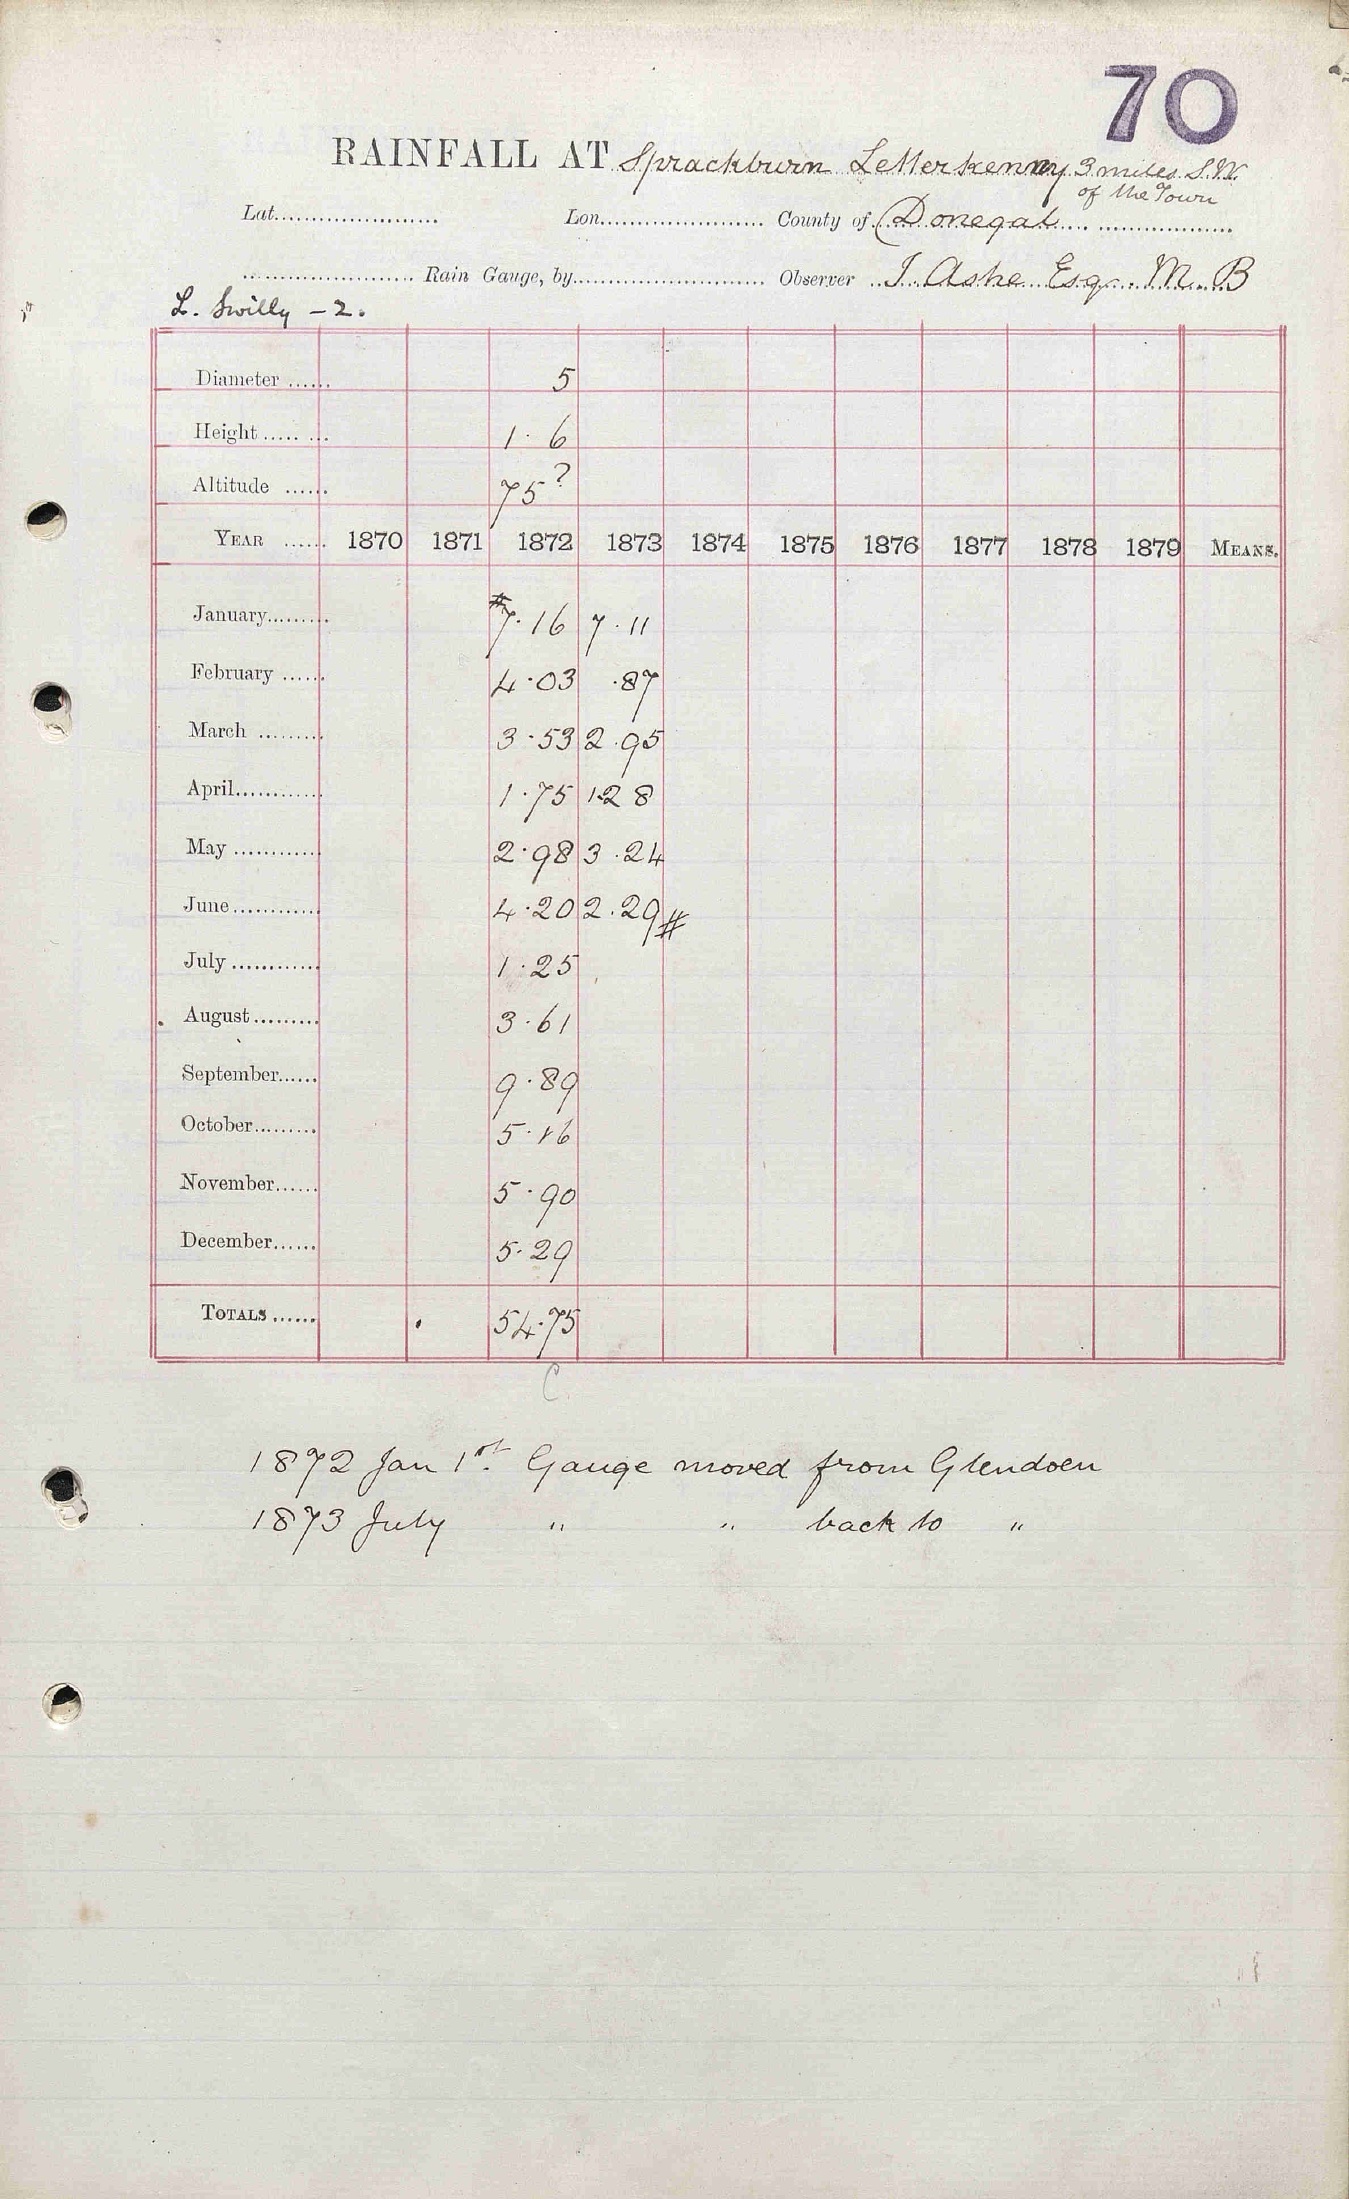 70
RAINFALL AT Sprackburn Letterkenny 3 miles S.W.
of the Town
Lat. Lon. County of Donegal
Rain Gauge, by Observer J. Ashe Esq. M. B
L. Swilly - 2.
Diameter 5
Height 1. 6
Altitude 75?
YEAR 1870 1871 1872 1873 1874 1875 1876 1877 1878 1879 MEANS.
January #7.16 7.11
February 4.03 .87
March 3.53 2.95
April 1.75 1.28
May 2.98 3.24
June 4.20 2.29#
July 1.25
August 3.61
September 9.89
October 5.16
November 5.90
December 5.29
TOTALS 54.75
C
1872 Jan 1st. Gauge moved from Glendoen
1873 July " " back to "